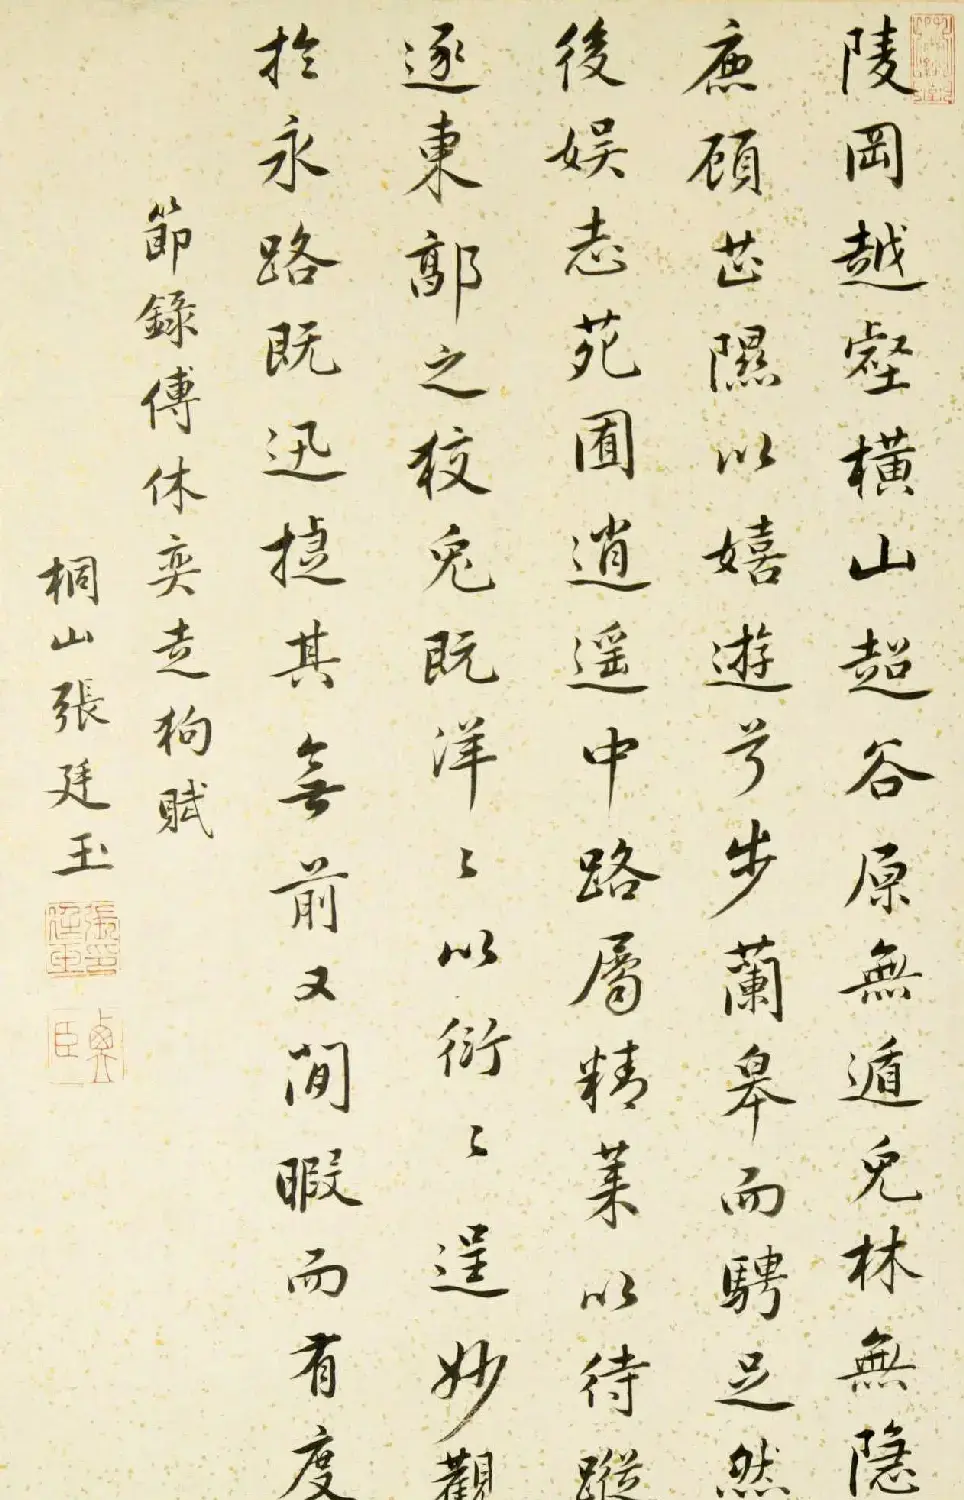 陵岡越壑橫山超谷原無遁兔林無隱
鹿顧芷隰以嬉遊兮步蘭皋而騁足然
後娛志苑囿逍遙中路屬精萊以待蹤
逐東郭之狡兔既洋〻以衍〻逞妙觀
於永路既迅捷其無前又閒暇而有度
節錄傅休奕走狗賦
桐山張廷玉
張廷玉印